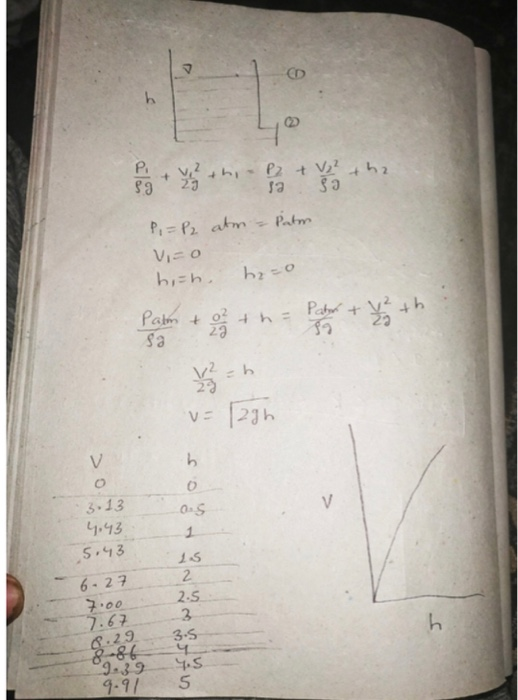 h
①
②
P₁/ρg + V₁²/2g + h₁ = P₂/ρg + V₂²/ρg + h₂
P₁ = P₂ atm = Patm
V₁ = 0
h₁ = h. h₂ = 0
Patm/ρg + 0²/2g + h = Patm/ρg + V²/2g + h
V²/2g = h
V = √2gh
V h
0 0
3.13 0.5
4.43 1
5.43 1.5
6.27 2
7.00 2.5
7.67 3
8.29 3.5
8.86 4
9.39 4.5
9.91 5
V
h